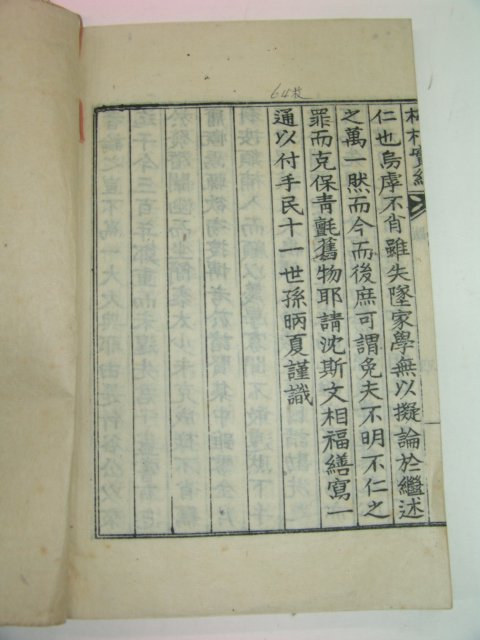 64枚
仁也烏虖不肖雖失墜家學無以擬論於繼述
之萬一然而今而後庶可謂免夫不明不仁之
罪而克保青氈舊物耶請沈斯文相福繕寫一
通以付手民十一世孫昞夏謹識